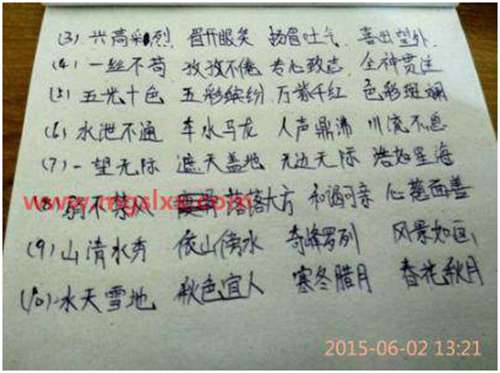 (3) 兴高彩烈 眉开眼笑 扬眉吐气 喜出望外
(4) 一丝不苟 孜孜不倦 专心致志 全神贯注
(5) 五光十色 五彩缤纷 万紫千红 色彩斑斓
(6) 水泄不通 车水马龙 人声鼎沸 川流不息
(7) 一望无际 遮天盖地 无边无际 浩如星海
www.mgslxs.com
(8) 弱不禁风 落落大方 和蔼可亲 心慈面善
(9) 山清水秀 依山傍水 奇峰罗列 风景如画
(10) 水天雪地 秋色宜人 寒冬腊月 春花秋月
2015-06-02 13:21